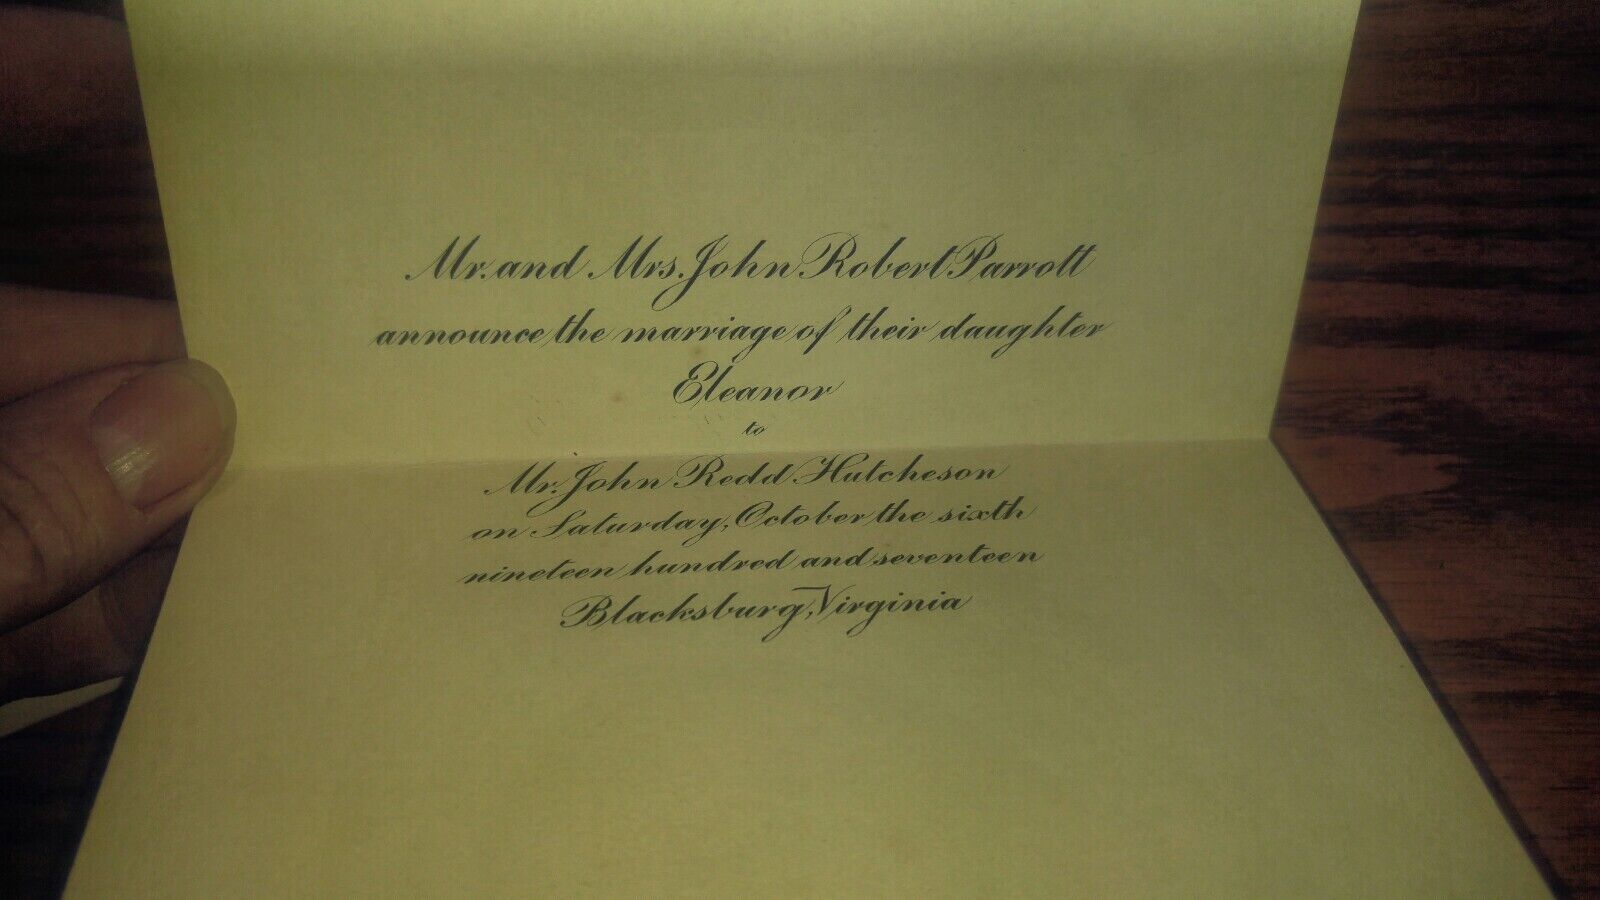 Mr. and Mrs. John Robert Parrott
announce the marriage of their daughter
Eleanor
to
Mr. John Redd Hutcheson
on Saturday, October the sixth
nineteen hundred and seventeen
Blacksburg, Virginia